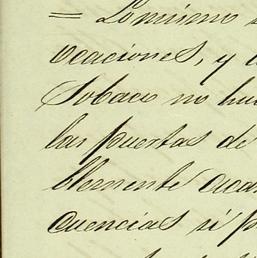 = Lo mismo
ocaciones, y
Tobaco no hu
las puertas de
blemente aca
cuencias si p